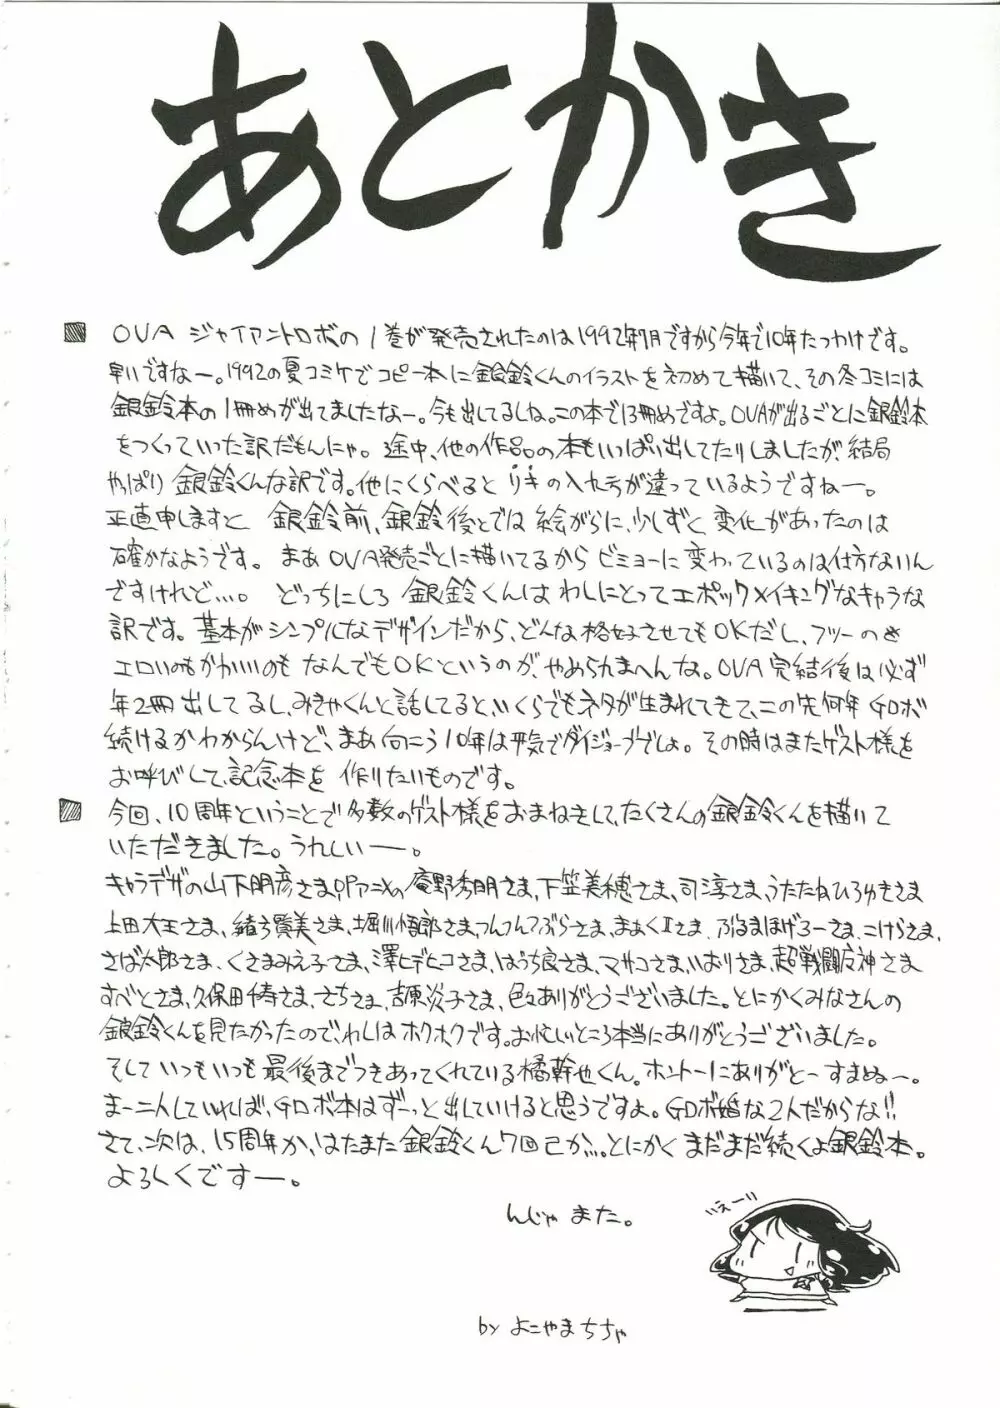 あとかき
OVA ジャイアントロボの1巻が発売されたのは1992年7月ですから今年で10年たつわけです。
早いですなー。1992の夏コミケでコピー本に銀鈴くんのイラストを初めて描いて、その冬コミには
銀鈴本の1冊めが出てましたなー。今も出してるしね。この本で13冊めですよ。OVAが出るごとに銀鈴本
をつくっていった訳だもんにゃ。途中、他の作品の本もいっぱい出してたりしましたが、結局
やっぱり銀鈴くんな訳です。他にくらべるとリキの入れ方が違っているようですねー。
正直申しますと 銀鈴前、銀鈴後とでは絵がらに、少しずつ変化があったのは
確かなようです。まあOVA発売ごとに描いてるからビミョーに変わっているのは仕方ないん
ですけれど…。どっちにしろ 銀鈴くんはわしにとってエポックメイキングなキャラな
訳です。基本がシンプルなデザインだから、どんな格好させてもOKだし、フツーのも
エロいのもかわいいのもなんでもOKというのが、やめられまへんな。OVA完結後は必ず
年2冊出してるし、みきゃくんと話してると、いくらでもネタが生まれてきて、この先何年Gロボ
続けるかわからんけど、まあ向こう10年は平気でダイジョーブでしょ。その時はまたゲスト様を
お呼びして、記念本を作りたいものです。
今回、10周年ということで多数のゲスト様をおまねきして、たくさんの銀鈴くんを描いて
いただきました。うれしいー。
キャラデザの山下明彦さま、OPアニメの庵野秀明さま、下笠美穂さま、司淳さま、うたたねひろゆきさま
上田大王さま、緒方賢美さま、堀川悟郎さま、つんつんつぶらさま、まぁくIIさま、ぶるまほげろーさま、こけらさま、
さば太郎さま、くさまみえ子さま、澤ヒデヒコさま、はうち良さま、マサコさま、いおりさま、超戦闘反神さま
すべとさま、久保田寿さま、さちさま、吉原炎子さま、色々ありがとうございました。とにかくみなさんの
銀鈴くんを見たかったので、わしはホクホクです。お忙しいところ本当にありがとうございました。
そして、いつもいつも最後までつきあってくれている橘幹也くん。ホントーにありがとーすまぬー。
まー二人していれば、Gロボ本はずーっと出していけると思うですよ。Gロボ婚な2人だからな!!
さて、次は、15周年か、はたまた銀鈴くん7回忌か…。とにかくまだまだ続くよ銀鈴本。
よろしくですー。
んじゃまた。
いえーい
by よこやまちちゃ